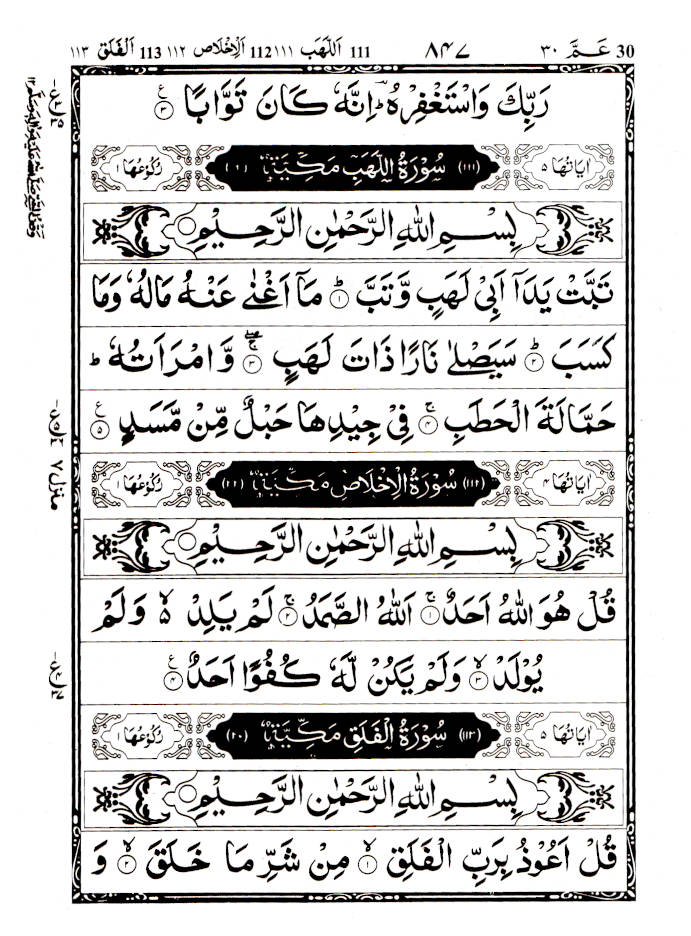 30 عَمَّ ۳۰ ۸۴۷ 111 اَللَّهَب ۱۱۱ 112 اَلْاِخْلَاص ۱۱۲ 113 اَلْفَلَق ۱۱۳
رَبِّكَ وَاسْتَغْفِرْهُ ؔؕ اِنَّهٗ كَانَ تَوَّابًا ۝۳ ع
اٰيَاتُهَا ۵ (۱۱۱) سُوْرَةُ اللَّهَبِ مَكِّيَّةٌ (۶) رُكُوْعُهَا ۱
بِسْمِ اللّٰهِ الرَّحْمٰنِ الرَّحِيْمِ ۝
تَبَّتْ يَدَاۤ اَبِيْ لَهَبٍ وَّتَبَّ ؕ ۝۱ مَاۤ اَغْنٰى عَنْهُ مَالُهٗ وَمَا
كَسَبَ ؕ ۝۲ سَيَصْلٰى نَارًا ذَاتَ لَهَبٍ ۝۳ۚۖ وَّامْرَاَتُهٗ ؕ
حَمَّالَةَ الْحَطَبِ ۝۴ۚ فِيْ جِيْدِهَا حَبْلٌ مِّنْ مَّسَدٍ ۝۵ ع
اٰيَاتُهَا ۴ (۱۱۲) سُوْرَةُ الْاِخْلَاصِ مَكِّيَّةٌ (۲۲) رُكُوْعُهَا ۱
بِسْمِ اللّٰهِ الرَّحْمٰنِ الرَّحِيْمِ ۝
قُلْ هُوَ اللّٰهُ اَحَدٌ ۝۱ۚ اَللّٰهُ الصَّمَدُ ۝۲ۚ لَمْ يَلِدْ ۙ۬ ۵ وَلَمْ
يُوْلَدْ ۝۳ۙ وَلَمْ يَكُنْ لَّهٗ كُفُوًا اَحَدٌ ۝۴ ع
اٰيَاتُهَا ۵ (۱۱۳) سُوْرَةُ الْفَلَقِ مَكِّيَّةٌ (۲۰) رُكُوْعُهَا ۱
بِسْمِ اللّٰهِ الرَّحْمٰنِ الرَّحِيْمِ ۝
قُلْ اَعُوْذُ بِرَبِّ الْفَلَقِ ۝۱ۙ مِنْ شَرِّ مَا خَلَقَ ۝۲ۙ وَ
منزل ۷